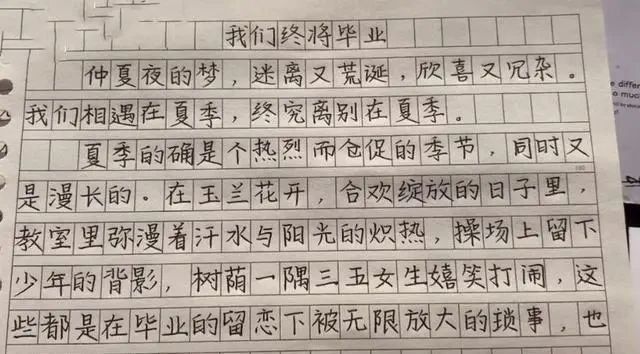 我们终将毕业
仲夏夜的梦，迷离又荒诞，欣喜又冗杂。
我们相遇在夏季，终究离别在夏季。
夏季的确是个热烈而仓促的季节，同时又
是漫长的。在玉兰花开，合欢绽放的日子里，
教室里弥漫着汗水与阳光的炽热，操场上留下
少年的背影，树荫一隅三五女生嬉笑打闹，这
些都是在毕业的留恋下被无限放大的琐事，也
e differ
a much